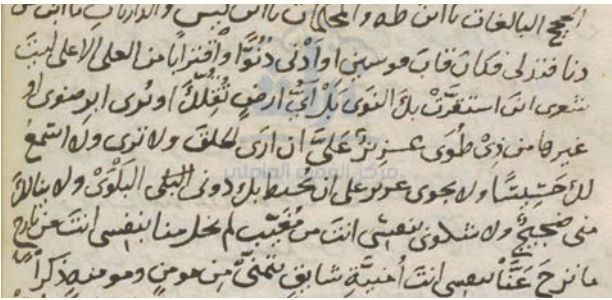 الحجج البالغات يا ابن طه والمحكمات يا ابن يس والذاريات يا ابن من
دنا فتدلى فكان قاب قوسين او أدنى دُنُوًّا واقترابا من العلى الاعلى ليت
شعرى اين استقرّت بك النوى بل اىّ ارض تُقلّك او ثرى ابرضوى او
غيرها من ذى طوى عزيز علىّ ان ارى الخلق ولا ترى ولا اسمع
لك حسيسًا ولا نجوى عزيز على ان تحيط بك دونى البلوى ولا ينالك
منى ضجيج ولا شكوى بنفسى انت من مغيّب لم يخل منا بنفسى انت من نازح
ما نزح عنّا بنفسى انت أمنية شايق يتمنى من مومن ومومنة ذكرا
مركز الفقيه العاملي